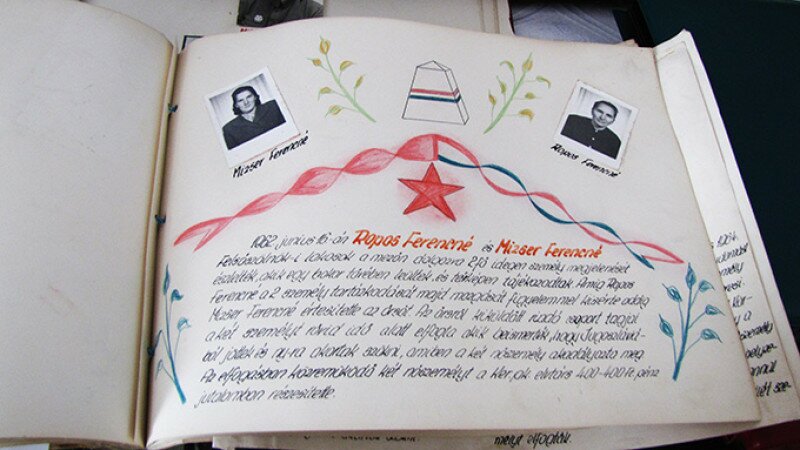 Mizser Ferencné
Rapos Ferencné
1962. junius 16-án Rapos Ferencné és Mizser Ferencné
Felsőszölnök-i lakosok a mezőn dolgozva 2 fő idegen személy megjelenését
észlelték, akik egy bokor tövében leültek és térképen tájékozódtak. Amíg Rapos
Ferencné a 2 személy tartózkodását majd mozgását figyelemmel kisérte addig
Mizser Ferencné értesitette az őrsöt. Az őrsről kiküldött riadó csoport tagjai
a két személyt rövid idő alatt elfogta akik beismerték, hogy Jugoszláviá-
ból jöttek és ny-ra akartak szökni, amiben a két nőszemély akadályozta meg.
Az elfogásban közreműködő két nőszemélyt a Ker. pk. elvtárs 400-400 Ft. pénz
jutalomban részesitette.
1964.
személy
a
mélyt elfogták.